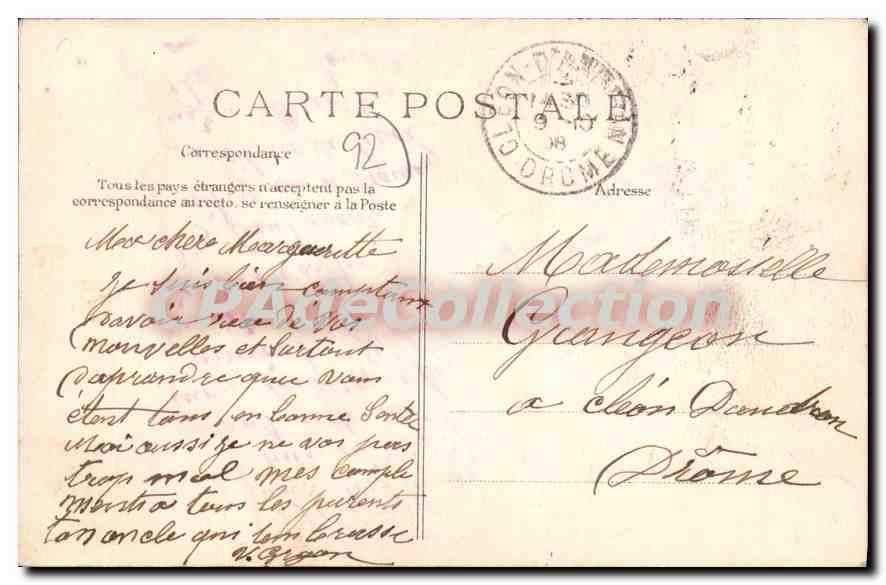 CARTE POSTALE
92
CLEON-D'ANDRAN
9 10
08
DROME
Correspondance
Tous les pays étrangers n'acceptent pas la
correspondance au recto, se renseigner à la Poste
Adresse
Ma chere Marguerite
je suis bien comptant
davoir recu de vos
nouvelles et surtout
daprandre que vous
étent tous en bonne Santé
Moi aussi je ne vos pas
trop mal mes comple
ments a tous les parents
ton oncle qui tembrasse
Mademoiselle
Grangeon
a cléon Dandran
Drôme
CPAgeCollection